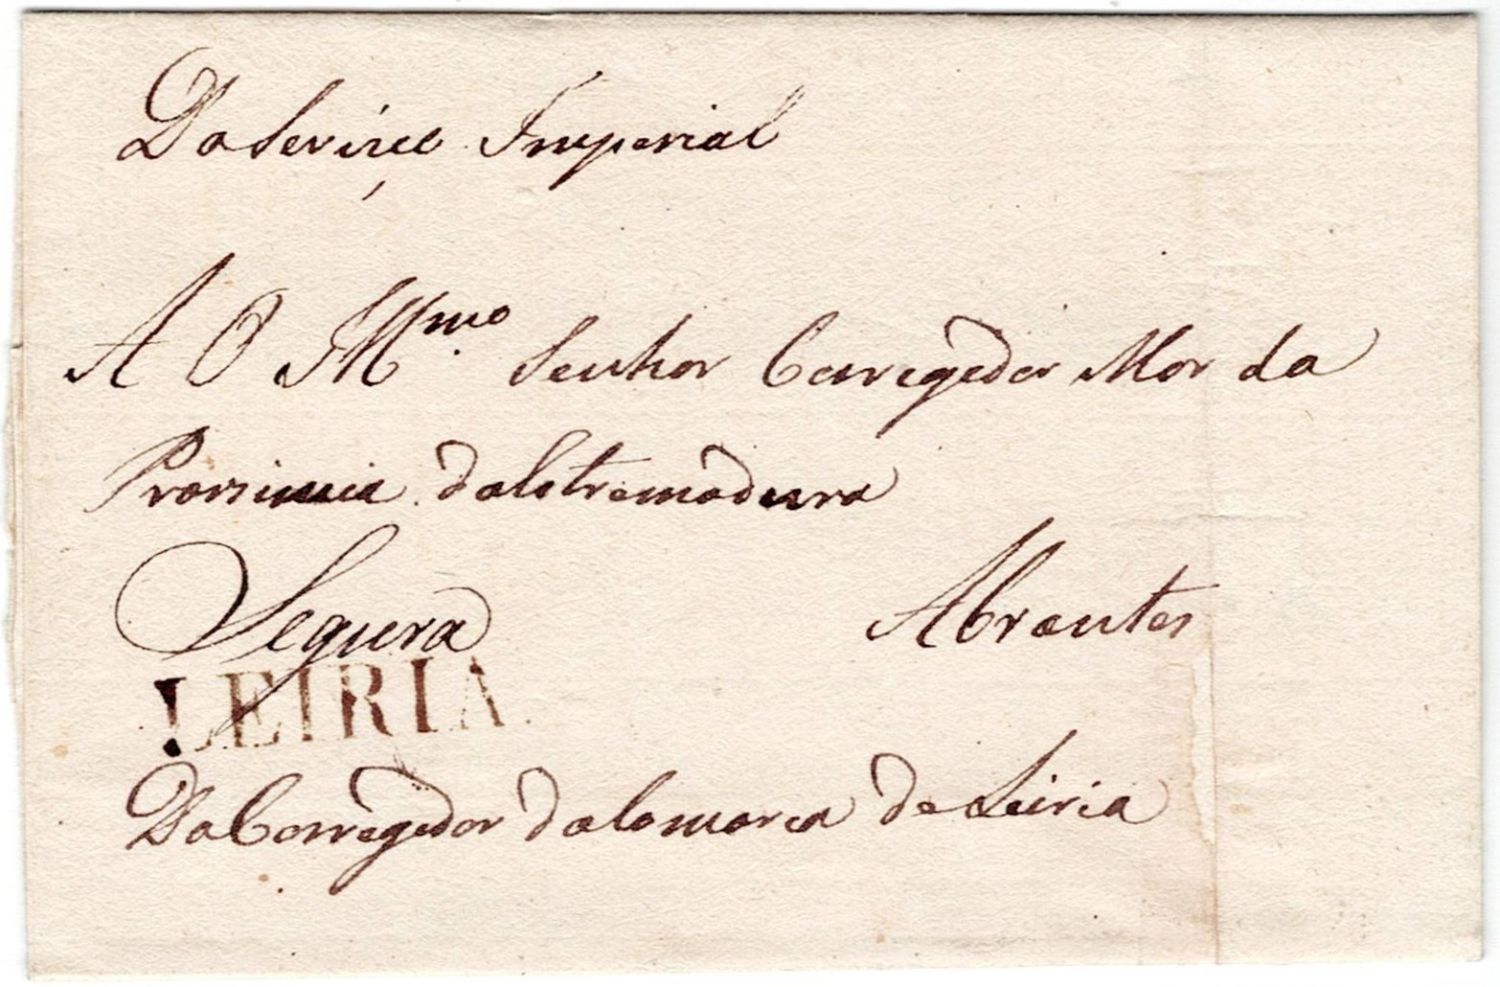 Do Serviço Imperial
A O Illmo. Senhor Corregedor Mor da
Provinsia da Estremadura
Segura Abrantes
LEIRIA
Do Corregedor da Comarca de Leiria